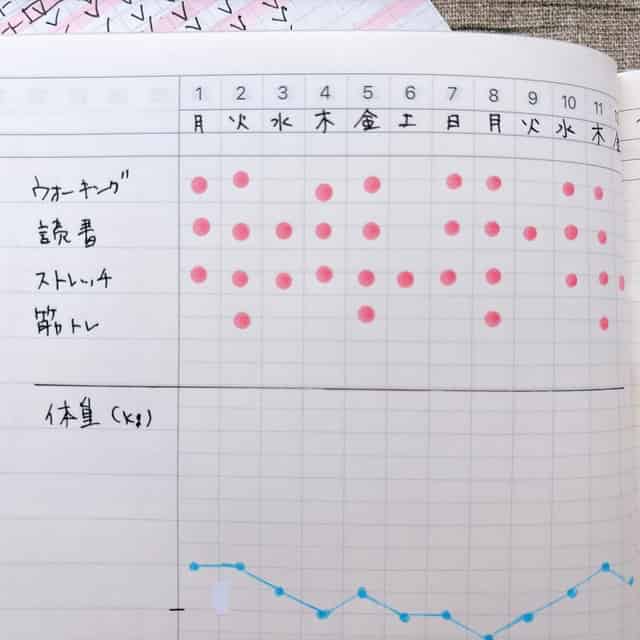 1 2 3 4 5 6 7 8 9 10 11
月 火 水 木 金 土 日 月 火 水 木
ウォーキング
読書
ストレッチ
筋トレ
体重(kg)